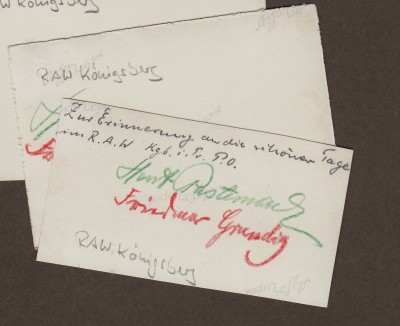 RAW Königsberg
RAW Königsberg
Zur Erinnerung an die schönen Tage
im R.A.W Kgb. i. Pr. P.O.
Horst
Friedmar Grundig
RAW. Königsberg